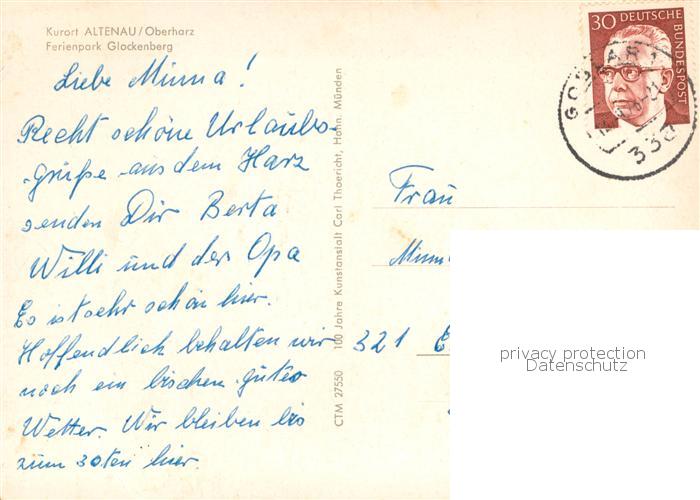 Kurort ALTENAU/Oberharz
Ferienpark Glockenberg
Liebe Minna!
Recht schöne Urlaubs-
grüße aus dem Harz
senden Dir Berta
Willi und der Opa
Es ist sehr schön hier.
Hoffendlich behalten wir
noch ein bischen gutes
Wetter. Wir bleiben bis
zum 30ten hier.
CTM 27550 100 Jahre Kunstanstalt Carl Thoericht, Hahn. Münden
30 DEUTSCHE
BUNDESPOST
GOSLAR 1
338
Frau
Minn
321
privacy protection
Datenschutz